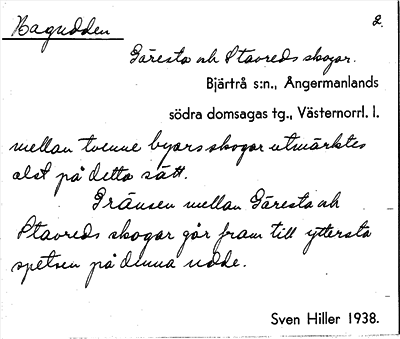 Bagudden
2.
Gäresta och Stavreds skogar.
Bjärtrå s:n., Ångermanlands
södra domsagas tg., Västernorrl. l.
mellan tvenne byars skogar utmärktes
alst på detta sätt.
Gränsen mellan Gäresta och
Stavreds skogar går fram till yttersta
spetsen på denna udde.
Sven Hiller 1938.